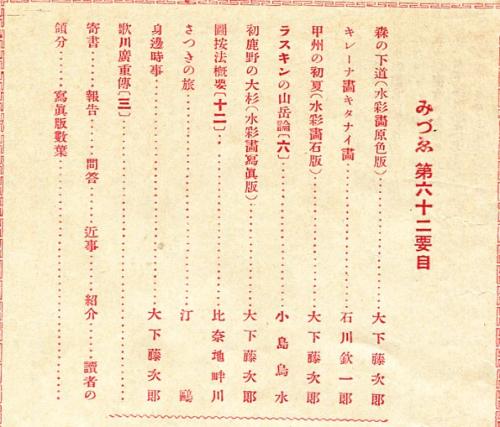 みづゑ 第六十二要目
森の下道(水彩畵原色版)……………大下藤次郎
キレーナ畵キタナイ畵……………石川欽一郎
甲州の初夏(水彩畵石版)……………大下藤次郎
ラスキンの山岳論〔六〕……………小島烏水
初鹿野の大杉(水彩畵寫眞版)……………大下藤次郎
圖按法概要〔十二〕……………比奈地畔川
さつきの旅……………汀鷗
身邊時事……………大下藤次郎
歌川廣重傳〔三〕……………
寄書……報告……問答……近事……紹介……讀者の
領分……寫眞版數葉……………